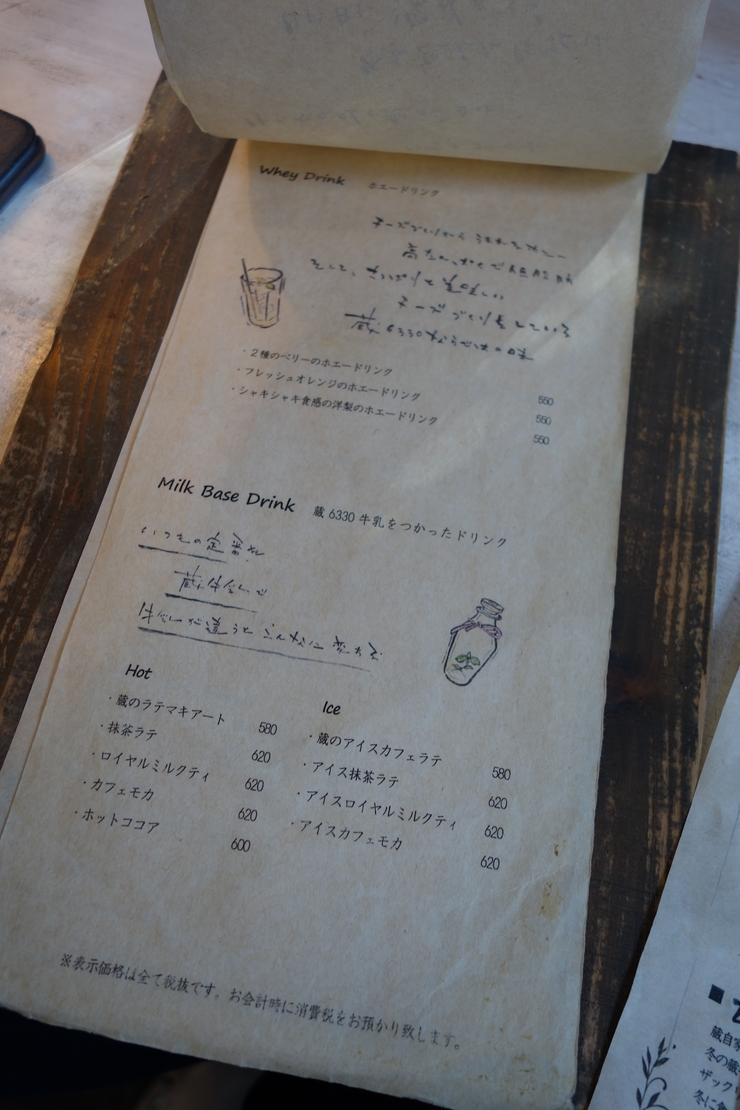 Whey Drink ホエードリンク
チーズづくりから うまれたホエー
高たんぱくで低脂肪
そして、さっぱりと美味しい
チーズづくりをしている
蔵6330ならではの味
・2種のベリーのホエードリンク 550
・フレッシュオレンジのホエードリンク 550
・シャキシャキ食感の洋梨のホエードリンク 550
Milk Base Drink 蔵6330牛乳をつかったドリンク
いつもの定番も
蔵牛乳で
牛乳が違うと こんなに変わる
Hot
・蔵のラテマキアート 580
・抹茶ラテ 620
・ロイヤルミルクティ 620
・カフェモカ 620
・ホットココア 600
Ice
・蔵のアイスカフェラテ 580
・アイス抹茶ラテ 620
・アイスロイヤルミルクティ 620
・アイスカフェモカ 620
※表示価格は全て税抜です。お会計時に消費税をお預かり致します。
蔵自家
冬の蔵
ザック
冬に